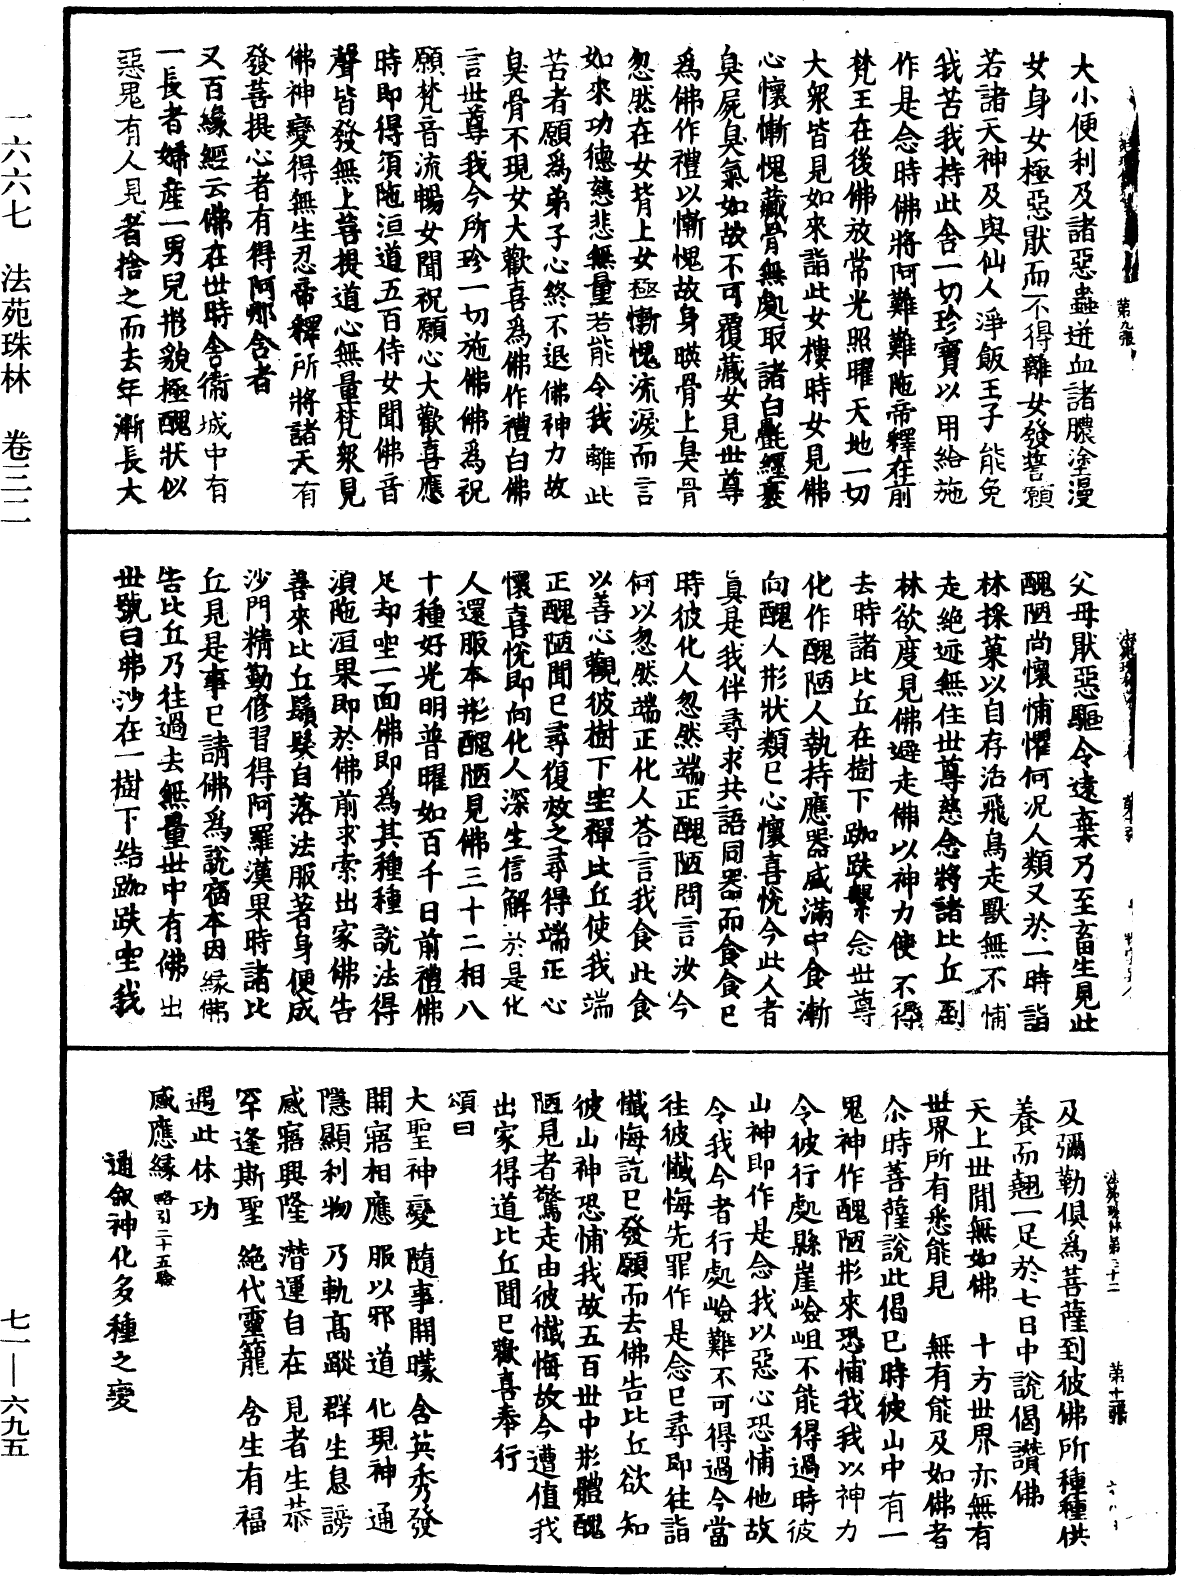 大小便利及諸惡蟲迸血諸膿塗漫
女身女極惡猒而不得離女發誓願
若諸天神及與仙人淨飯王子能免
我苦我持此舍一切珍寶以用給施
作是念時佛將阿難難陁帝釋在前
梵王在後佛放常光照曜天地一切
大衆皆見如來詣此女樓時女見佛
心懷慚愧藏骨無處取諸白㲲纏裹
臭屍臭氣如故不可覆藏女見世尊
爲佛作禮以慚愧故身暎骨上臭骨
忽然在女背上女極慚愧流淚而言
如來功德慈悲無量若能令我離此
苦者願爲弟子心終不退佛神力故
臭骨不現女大歡喜爲佛作禮白佛
言世尊我今所珍一切施佛佛爲祝
願梵音流暢女聞祝願心大歡喜應
時即得須陁洹道五百侍女聞佛音
聲皆發無上菩提道心無量梵衆見
佛神變得無生忍帝釋所將諸天有
發菩提心者有得阿那含者
又百緣經云佛在世時舍衛城中有
一長者婦產一男兒形貌極醜狀似
惡鬼有人見者捨之而去年漸長大
父母猒惡驅令遠棄乃至畜生見此
醜陋尚懷怖懼何況人類又於一時詣
林採菓以自存活飛鳥走獸無不怖
走絕迹無住世尊慈念將諸比丘到
林欲度見佛避走佛以神力使不得
去時諸比丘在樹下跏趺繫念世尊
化作醜陋人執持應器盛滿中食漸
向醜人形狀類已心懷喜悅今此人者
真是我伴尋求共語同器而食食已
時彼化人忽然端正醜陋問言汝今
何以忽然端正化人荅言我食此食
以善心觀彼樹下坐禪比丘使我端
正醜陋聞已尋復效之尋得端正心
懷喜悅即向化人深生信解於是化
人還服本形醜陋見佛三十二相八
十種好光明普曜如百千日前禮佛
足却坐一面佛即爲其種種說法得
須陁洹果即於佛前求索出家佛告
善來比丘鬚髮自落法服著身便成
沙門精勤修習得阿羅漢果時諸比
丘見是事已請佛爲說宿本因緣佛
告比丘乃往過去無量世中有佛出
世號曰弗沙在一樹下結跏趺坐我
及彌勒俱爲菩薩到彼佛所種種供
養而翹一足於七日中說偈讚佛
天上世間無如佛　十方世界亦無有
世界所有悉能見　無有能及如佛者
尒時菩薩說此偈已時彼山中有一
鬼神作醜陋形來恐怖我我以神力
令彼行處縣崖嶮岨不能得過時彼
山神即作是念我以惡心恐怖他故
令我今者行處嶮難不可得過今當
往彼懺悔先罪作是念已尋即往詣
懺悔訖已發願而去佛告比丘欲知
彼山神恐怖我故五百世中形體醜
陋見者驚走由彼懺悔故今遭值我
出家得道比丘聞已歡喜奉行
頌曰
大聖神變　隨事開曚　含英秀發
開寤相應　服以邪道　化現神通
隱顯利物　乃軌高蹤　群生息謗
感寤興隆　潛運自在　見者生恭
罕逢斯聖　絕代靈龍　含生有福
遇此休功
感應緣略引二十五驗
通敘神化多種之變
法苑珠林第三十二　第十一張
第九張
一六六七　法苑珠林　卷三二
七一——六九五